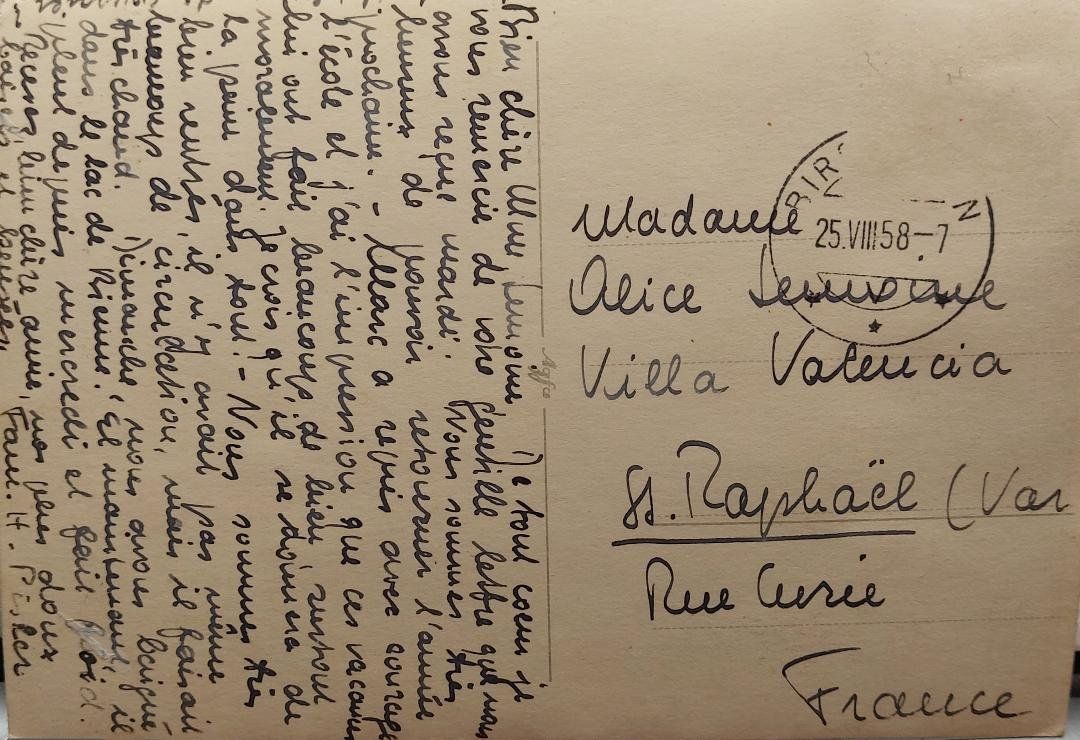 Bien chère Mme Lemoine, De tout coeur je
vous remercie de votre gentille lettre que nous
avons reçue mardi. Nous sommes très
heureux de pouvoir retourner l'année
prochaine. - Marc a repris avec courage
l'école et j'ai l'impression que ces vacances
lui ont fait beaucoup de bien, surtout
moralement. Je crois qu'il se donnera de
la peine dans tout. - Nous sommes très
bien rentrés, il n'y avait pas même
beaucoup de circulation, mais il faisait
très chaud. Dimanche, nous avons baigné
dans le lac de Bienne. Et maintenant, il
pleut depuis mercredi et fait froid.
Recevez, bien chère amie, nos plus doux
baisers et pensées
Fam. H.
Madame
Alice Lemoine
Villa Valencia
St. Raphaël (Var
Rue Curie
France
25.VIII.58-7